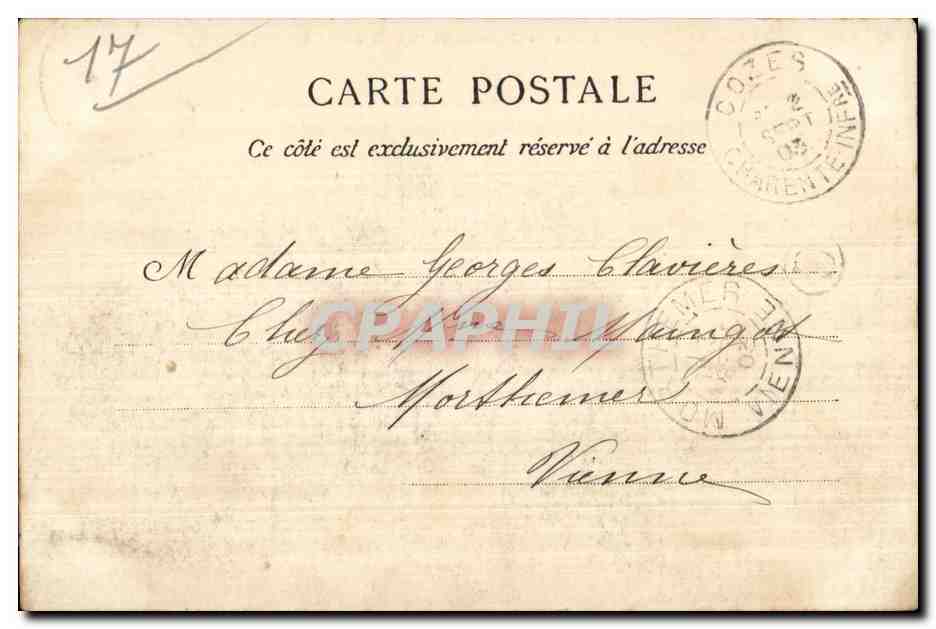 17
CARTE POSTALE
Ce côté est exclusivement réservé à l'adresse
COZES
2
SEPT
03
CHARENTE INFRE
Madame Georges Clavières
Chez Mme Maingot
Morthemer
Vienne
MORTHEMER
VIENNE
CPAPHIL